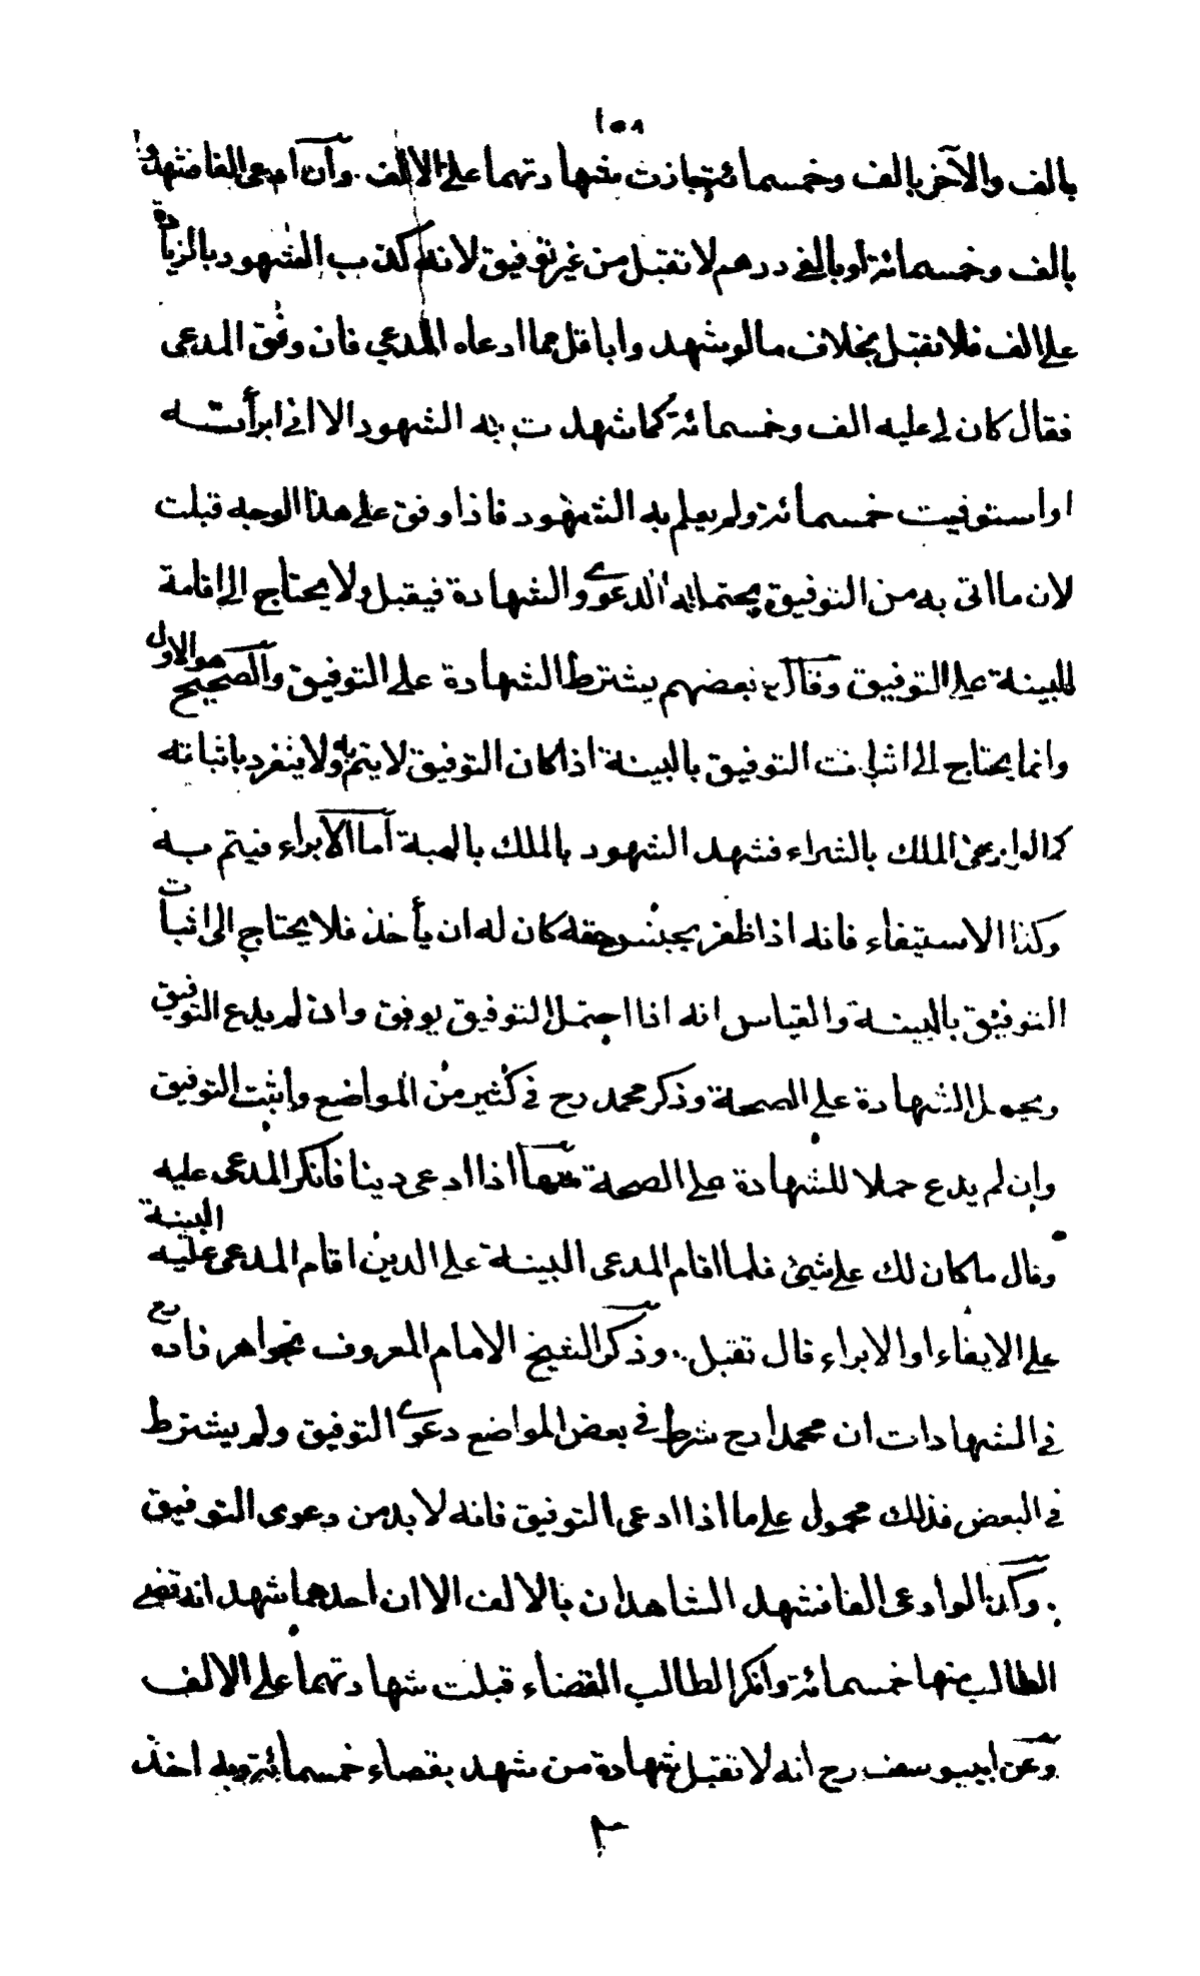 ١٥٨
بالف والآخر بالف وخمسمائة جازت شهادتهما على الالف. وان ادعى الفا فشهدوا
بالف وخمسمائة او بالفى درهم لا تقبل من غير توفيق لانه كذب الشهود بالزيادة
على الف فلا تقبل بخلاف ما لو شهد وا باقل مما ادعاه المدعي فان وفق المدعى
فقال كان لى عليه الف وخمسمائة كما شهدت به الشهود الا انى ابرأته
او استوفيت خمسمائة ولم يعلم به الشهود فاذا وفق على هذا الوجه قبلت
لان ما اتى به من التوفيق يحتمله الدعوى والشهادة فيقبل ولا يحتاج الى اقامة
البينة على التوفيق وقال بعضهم يشترط الشهادة على التوفيق والصحيح هو الاول
وانما يحتاج الى اثبات التوفيق بالبينة اذا كان التوفيق لا يتم به ولا ينفرد باثباته
كما لو ادعى الملك بالشراء فشهد الشهود بالملك بالهبة اما الابراء فيتم به
وكذا الاستيفاء فانه اذا ظفر بجنس حقه كان له ان يأخذ فلا يحتاج الى اثبات
التوفيق بالبينة والقياس انه اذا احتمل التوفيق يوفق وان لم يدع التوفيق
ويحمل الشهادة على الصحة وذكر محمد رح فى كثير من المواضع واثبت التوفيق
وان لم يدع حملا للشهادة على الصحة منها اذا ادعى دينا فانكر المدعى عليه
وقال ما كان لك على شئ فلما اقام المدعى البينة على الدين اقام المدعى عليه البينة
على الايفاء او الابراء قال تقبل.. وذكر الشيخ الامام المعروف بخواهر زاده رح
فى الشهادات ان محمدا رح شرط فى بعض المواضع دعوى التوفيق ولم يشترط
فى البعض فذلك محمول على ما اذا ادعى التوفيق فانه لا بد من دعوى التوفيق
. وكذا لو ادعى الفا فشهد الشاهدان بالالف الا ان احدهما شهد انه قضى
الطالب منها خمسمائة وانكر الطالب القضاء قبلت شهادتهما على الالف
وعن ابيوسف رح انه لا تقبل شهادة من شهد بقضاء خمسمائة وبه اخذ